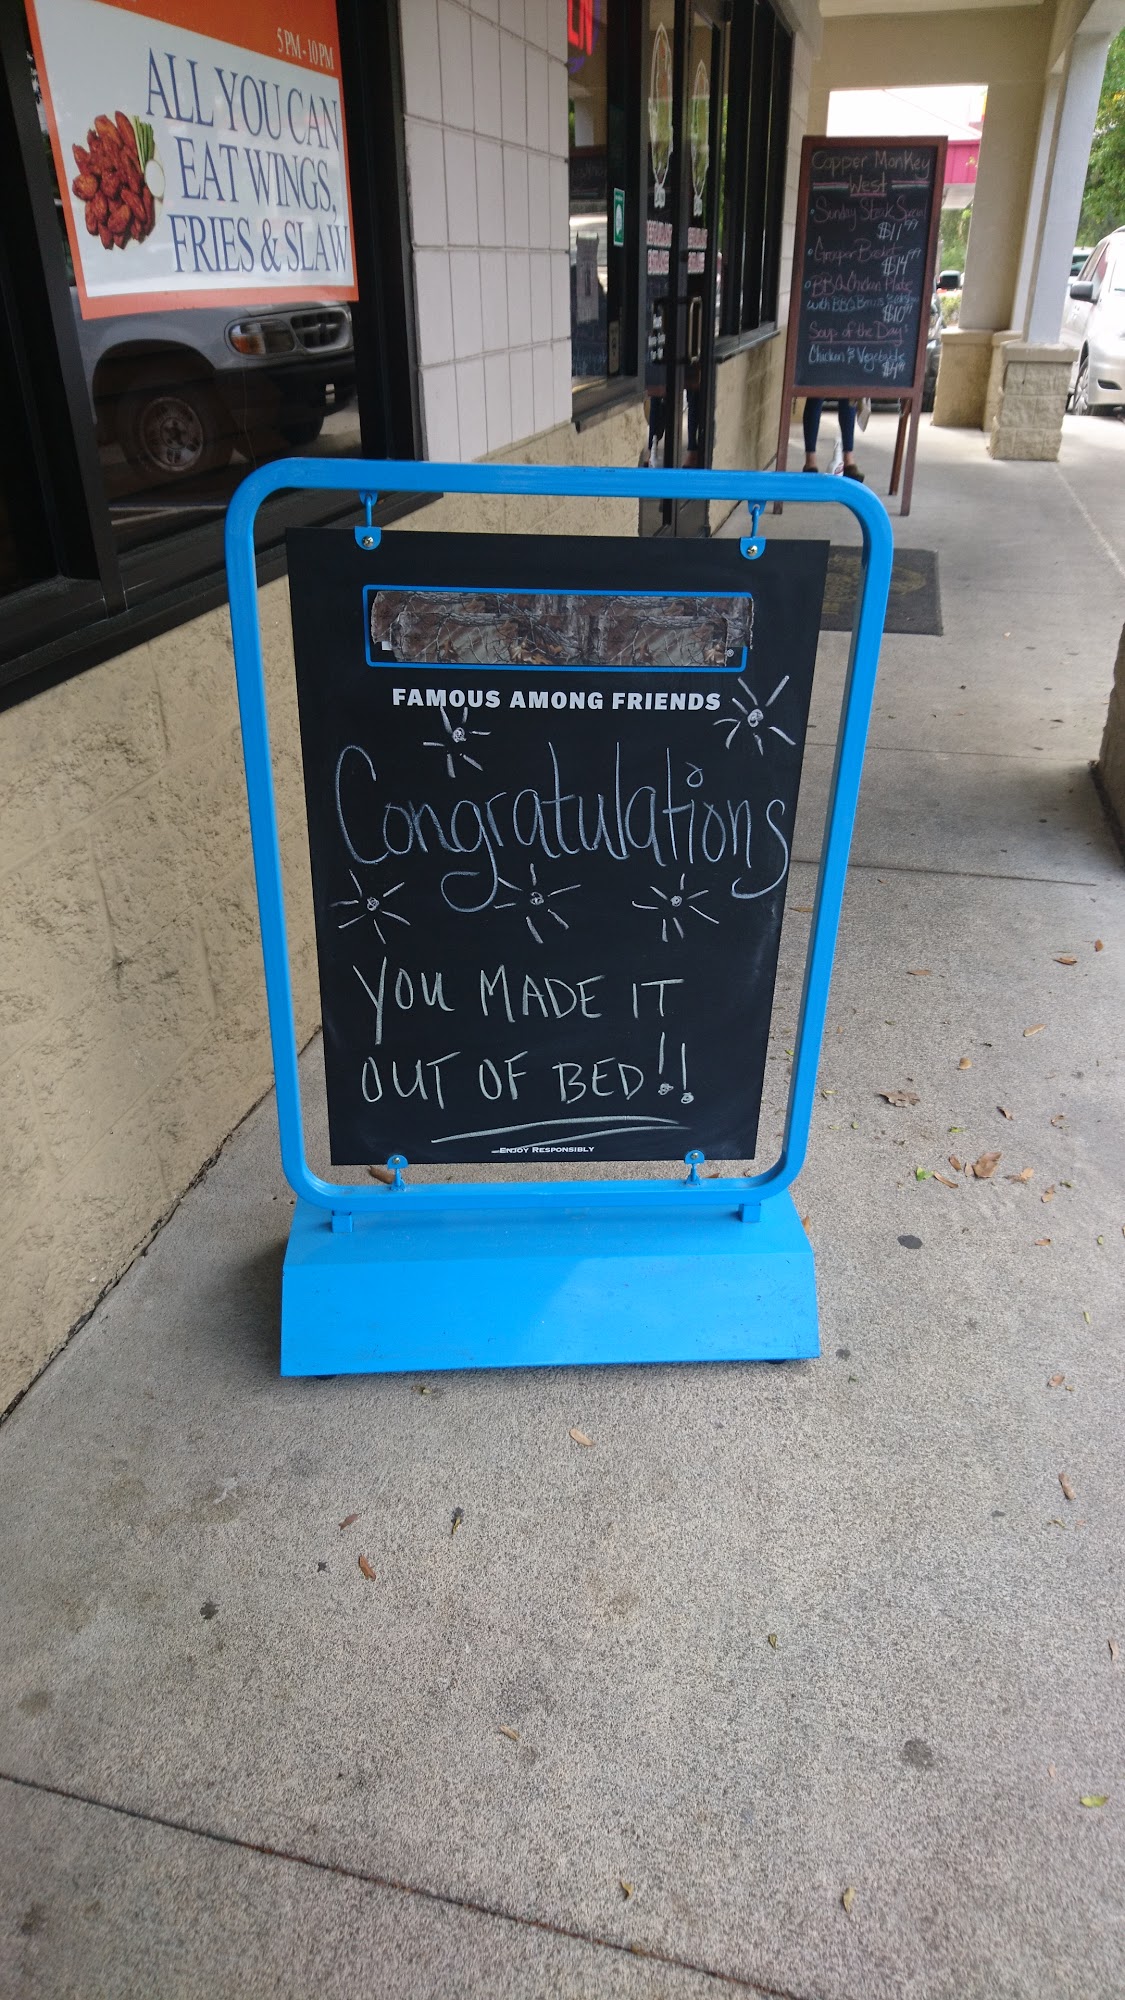 5PM-10PM
ALL YOU CAN
EAT WINGS,
FRIES & SLAW
Copper Monkey
West
Sunday Steak Special
$11.99
Grouper Basket
$14.99
BBQ Chicken Plate
with BBQ Beans
$10
Soup of the Day:
Chicken & Vegetable
FAMOUS AMONG FRIENDS
Congratulations
YOU MADE IT
OUT OF BED!!
ENJOY RESPONSIBLY